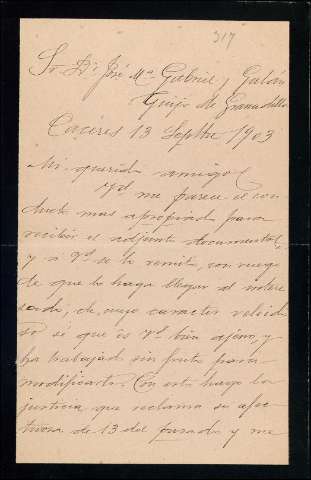 317
Sr. Dn. José Mª Gabriel y Galán
Guijo de Granadilla
Cáceres 13 Sepbre 1903
Mi querido amigo:
Vd. me parece el con
ducto mas apropiado para
recibir el adjunto documental,
y á Vd. se lo remito, con ruego
de que lo haga llegar al intere
sado, de cuyo caracter veleido
so sé que es Vd. bien ajeno, y
ha trabajado sin fruto para
modificarlo. Con esto hago la
justicia que reclama su afec
tuosa de 13 del pasado y me